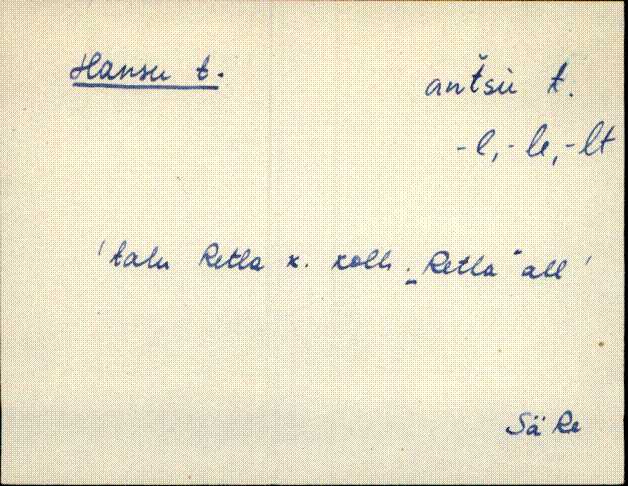 Hansu t.
antsù t.
-l, -le, -lt
'talu Retla k. kolh. „Retla" all'
Sä Re